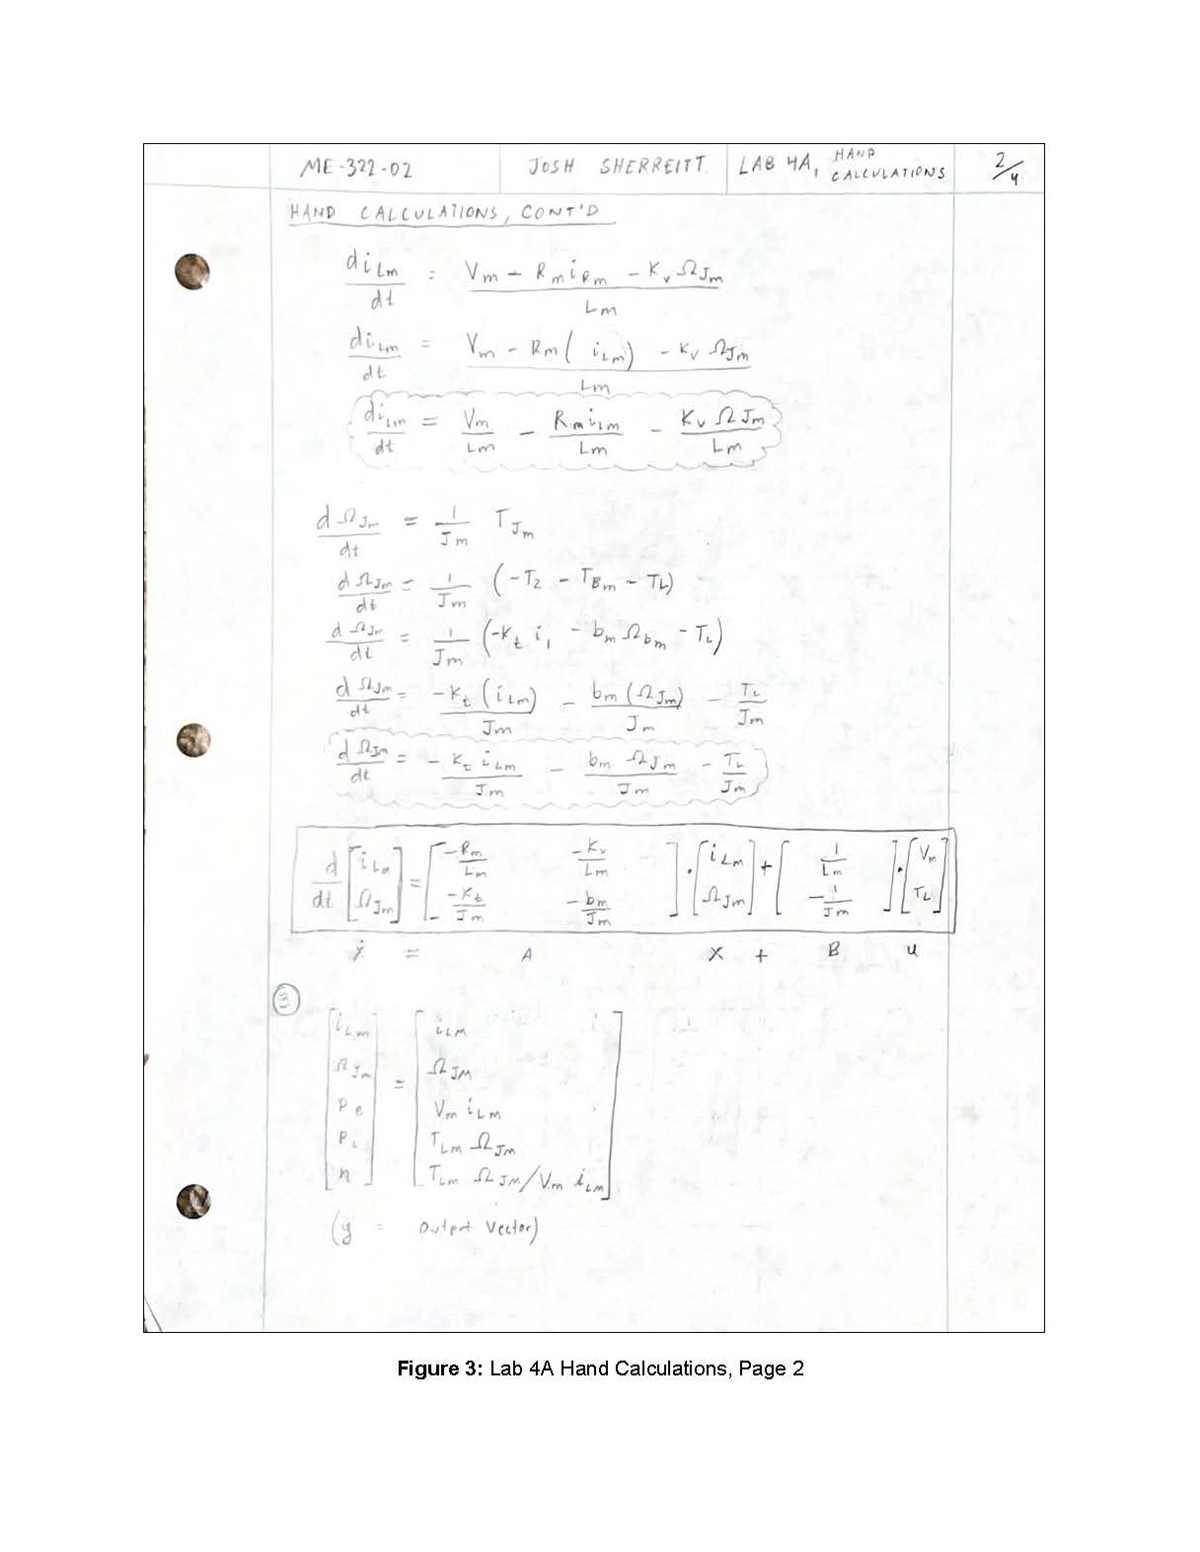 ME-322-02 JOSH SHERREITT. LAB 4A, HAND CALCULATIONS 2/4
HAND CALCULATIONS, CONT'D
di_Lm/dt = (V_m - R_m i_Rm - K_v Ω_Jm)/L_m
di_Lm/dt = (V_m - R_m(i_Lm) - K_v Ω_Jm)/L_m
di_Lm/dt = V_m/L_m - R_m i_Lm/L_m - K_v Ω_Jm/L_m
dΩ_Jm/dt = 1/J_m T_Jm
dΩ_Jm/dt = 1/J_m (-T_2 - T_Bm - T_L)
dΩ_Jm/dt = 1/J_m (-K_t i_1 - b_m Ω_bm - T_L)
dΩ_Jm/dt = -K_t(i_Lm)/J_m - b_m(Ω_Jm)/J_m - T_L/J_m
dΩ_Jm/dt = -K_t i_Lm/J_m - b_m Ω_Jm/J_m - T_L/J_m
d/dt [i_Lm; Ω_Jm] = [-R_m/L_m -K_v/L_m; -K_t/J_m -b_m/J_m] · [i_Lm; Ω_Jm] + [1/L_m; -1/J_m] · [V_m; T_L]
ẋ = A x + B u
③
[i_Lm = [i_Lm
Ω_Jm Ω_JM
P_e V_m i_Lm
T_Lm Ω_Jm
n] T_Lm Ω_JM/V_m i_Lm]
(y = Output Vector)
Figure 3: Lab 4A Hand Calculations, Page 2